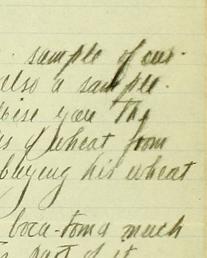 sample of our
also a sample
you the
of wheat from
buying his wheat
much
part of it